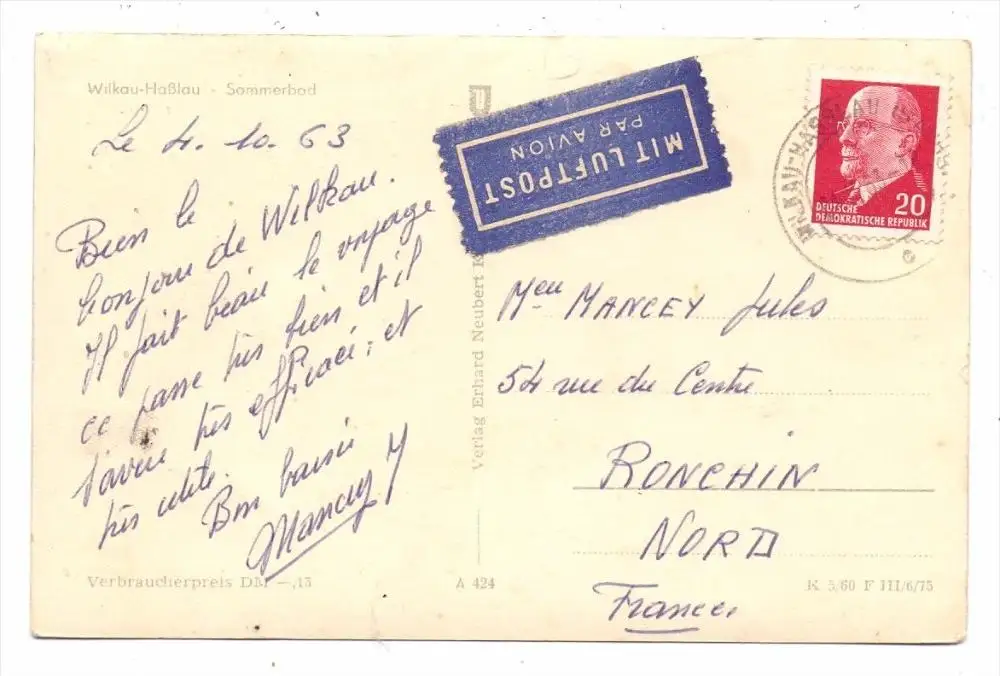 Wilkau-Haßlau - Sommerbad
Le 4. 10. 63
Bien le
bonjour de Wilkau.
Il fait beau le voyage
ce passe très bien et il
s'avère très efficace; et
très utile.
Bon baisé
Mancey J
Verbraucherpreis DM —,13
A 424
Verlag Erhard Neubert K
MIT LUFTPOST
PAR AVION
WILKAU-HASSLAU
20
DEUTSCHE
DEMOKRATISCHE REPUBLIK
MANCEY Jules
54 rue du Centre
RONCHIN
NORD
France
K 5/60 F III/6/75